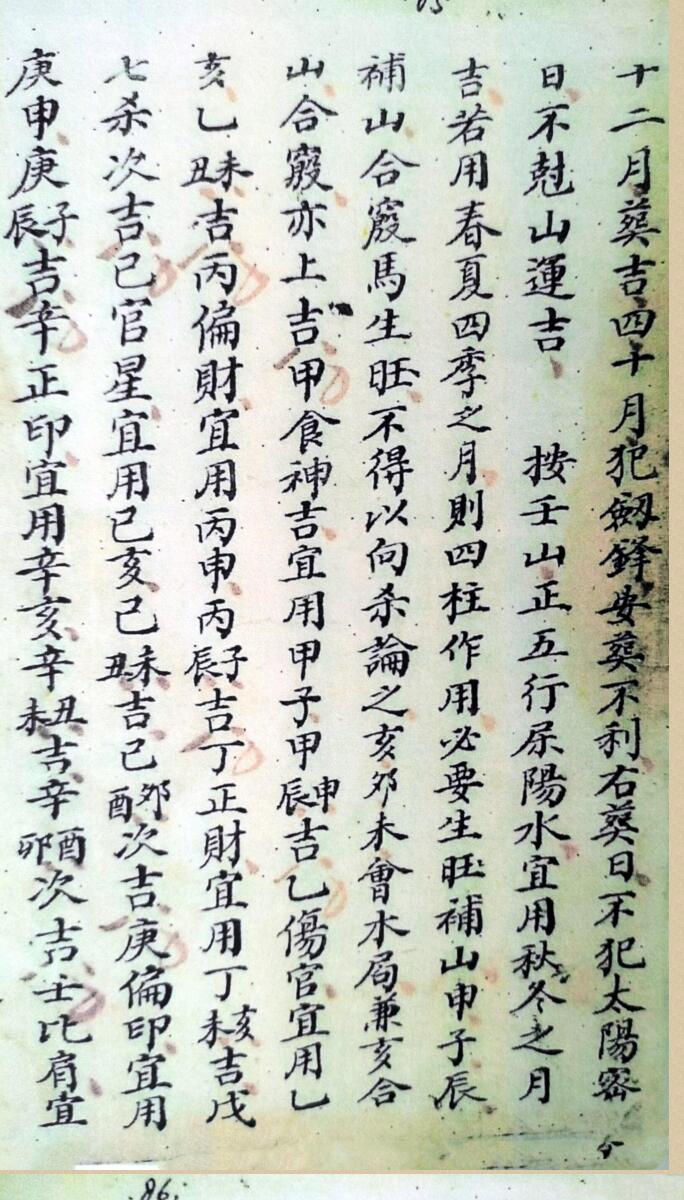 十二月葬吉四十月犯劔鋒安葬不利右葬日不犯太陽密
日不尅山運吉 按壬山正五行屬陽水宜用秋冬之月
吉若用春夏四季之月則四柱作用必要生旺補山申子辰
補山合竅馬生旺不得以向杀論之亥卯未會水局兼亥合
山合竅亦上吉甲食神吉宜用甲子甲申辰吉乙傷官宜用乙
亥乙未丑吉丙偏財宜用丙申丙子辰吉丁正財宜用丁亥未吉戊
七杀次吉己官星宜用己亥己未丑吉己卯酉次吉庚偏印宜用
庚申庚子辰吉辛正印宜用辛亥辛丑未吉辛酉卯次吉壬比肩宜
86.